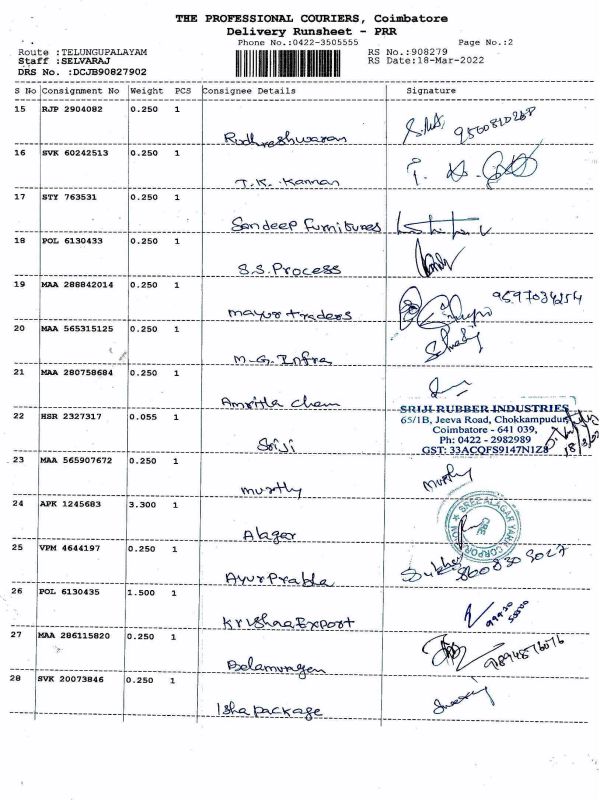 THE PROFESSIONAL COURIERS, Coimbatore
Delivery Runsheet - PRR
Phone No.:0422-3505555 Page No.:2
Route :TELUNGUPALAYAM RS No.:908279
Staff :SELVARAJ RS Date:18-Mar-2022
DRS No. :DCJB90827902
S No Consignment No Weight PCS Consignee Details Signature
15 RJP 2904082 0.250 1
Rudhreshwaran
16 SVK 60242513 0.250 1
T.K. Kannan
17 STY 763531 0.250 1
Sandeep Furnitures
18 POL 6130433 0.250 1
S.S. Process
19 MAA 288842014 0.250 1
mayur traders 9597034254
20 MAA 565315125 0.250 1
M.G. Infra
21 MAA 280758684 0.250 1
Amritla Chem
SRIJI RUBBER INDUSTRIES
22 HSR 2327317 0.055 1 65/1B, Jeeva Road, Chokkampudur,
Coimbatore - 641 039,
Sriji Ph: 0422 - 2982989
GST: 33ACQFS9147N1Z8
23 MAA 565907672 0.250 1
murthy murthy
24 APK 1245683 3.300 1 SREE ALAGAR YARN CORPORATION
CBE
Alagar
25 VPM 4644197 0.250 1
AyurPrabha
26 POL 6130435 1.500 1
Krishna Export
27 MAA 286115820 0.250 1
9894876076
28 SVK 20073846 0.250 1
Isha package